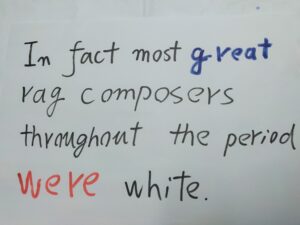 In fact most great
rag composers
throughout the period
were white.